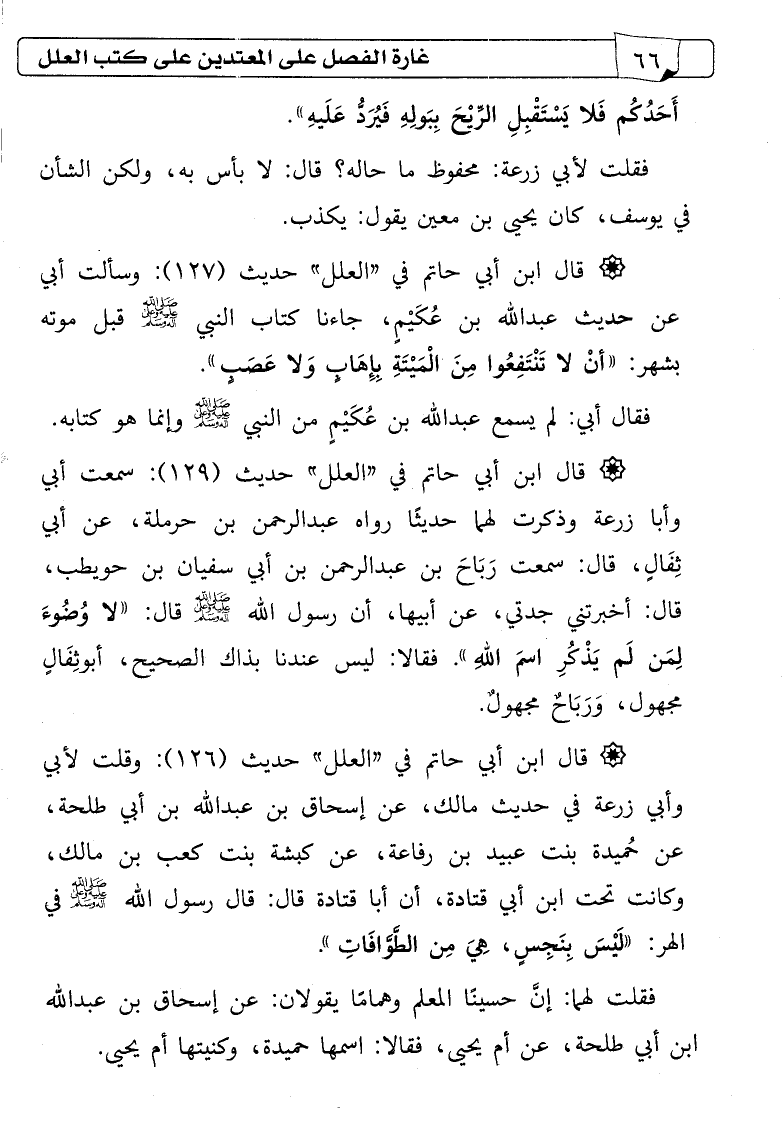 ٦٦ غارة الفصل على المعتدين على كتب العلل
أَحَدُكُم فَلا يَسْتَقْبِلِ الرِّيْحَ بِبَولِهِ فَيُرَدُّ عَلَيهِ».
فقلت لأبي زرعة: محفوظ ما حاله؟ قال: لا بأس به، ولكن الشأن
في يوسف، كان يحيى بن معين يقول: يكذب.
۞ قال ابن أبي حاتم في «العلل» حديث (١٢٧): وسألت أبي
عن حديث عبدالله بن عُكَيْمٍ، جاءنا كتاب النبي ﷺ قبل موته
بشهر: «أنْ لا تَنْتَفِعُوا مِنَ الْمَيْتَةِ بِإهَابٍ وَلا عَصَبٍ».
فقال أبي: لم يسمع عبدالله بن عُكَيْمٍ من النبي ﷺ وإنما هو كتابه.
۞ قال ابن أبي حاتم في «العلل» حديث (١٢٩): سمعت أبي
وأبا زرعة وذكرت لهما حديثًا رواه عبدالرحمن بن حرملة، عن أبي
ثِفَالٍ، قال: سمعت رَبَاحَ بن عبدالرحمن بن أبي سفيان بن حويطب،
قال: أخبرتني جدتي، عن أبيها، أن رسول الله ﷺ قال: «لا وُضُوءَ
لِمَن لَم يَذْكُرِ اسمَ اللهِ». فقالا: ليس عندنا بذاك الصحيح، أبوثِفَالٍ
مجهول، وَرَبَاحٌ مجهولٌ.
۞ قال ابن أبي حاتم في «العلل» حديث (١٢٦): وقلت لأبي
وأبي زرعة في حديث مالك، عن إسحاق بن عبدالله بن أبي طلحة،
عن حُميدة بنت عبيد بن رفاعة، عن كبشة بنت كعب بن مالك،
وكانت تحت ابن أبي قتادة، أن أبا قتادة قال: قال رسول الله ﷺ في
الهر: «لَيْسَ بِنَجِسٍ، هِيَ مِن الطَّوَّافَاتِ».
فقلت لهما: إنَّ حسينًا المعلم وهمامًا يقولان: عن إسحاق بن عبدالله
ابن أبي طلحة، عن أم يحيى، فقالا: اسمها حميدة، وكنيتها أم يحيى.